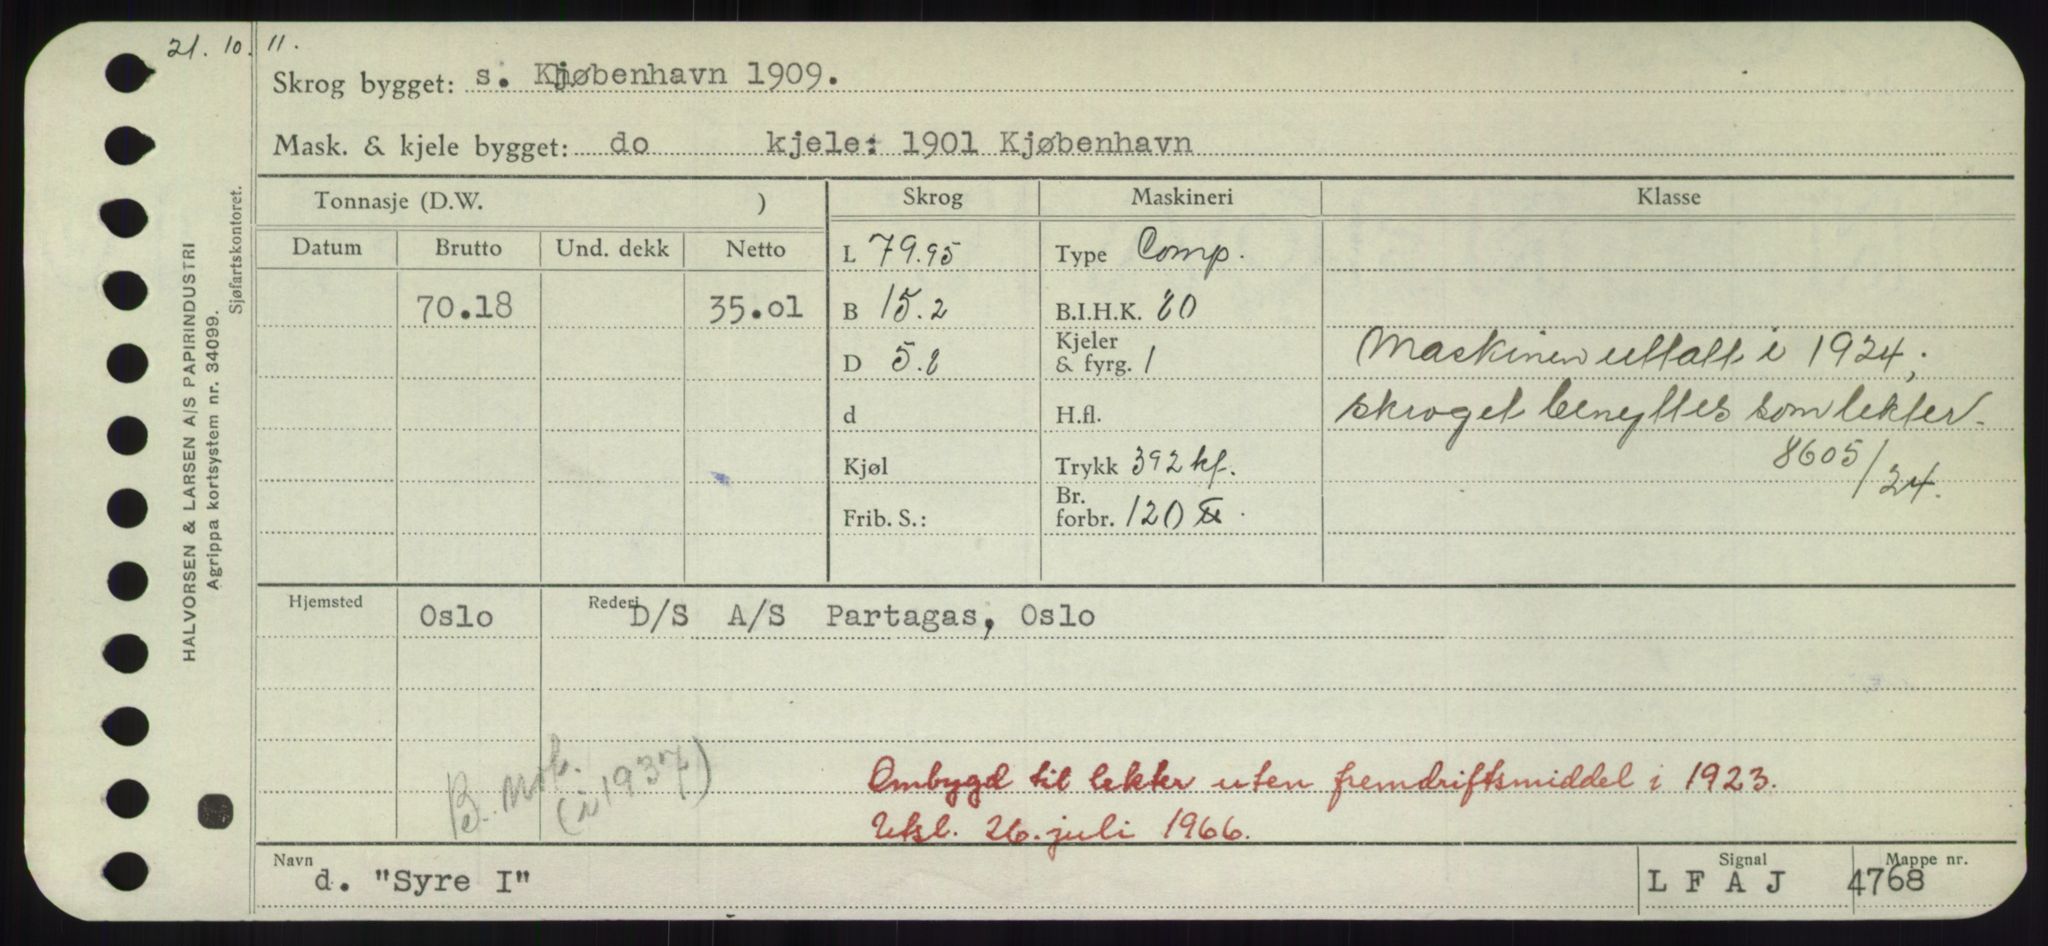 21. 10. 11.
Skrog bygget: s. Kjøbenhavn 1909.
Mask. & kjele bygget: do kjele: 1901 Kjøbenhavn
Tonnasje (D.W. ) Skrog Maskineri Klasse
Datum Brutto Und. dekk Netto L 79.95 Type Comp.
70.18 35.01 B 15.2 B.I.H.K. 20
D 5.8 Kjeler & fyrg. 1 Maskinen uttatt i 1924;
d H.fl. skroget benyttes som lekter.
Kjøl Trykk 392 kf. 8605/24.
Frib. S.: Br. forbr. 120
Hjemsted Oslo Rederi D/S A/S Partagas, Oslo
B. mot. (i 1937)
Ombygd til lekter uten fremdriftsmiddel i 1923.
Utsl. 26. juli 1966.
Navn d. "Syre I" Signal L F A J Mappe nr. 4768
HALVORSEN & LARSEN A/S PAPIRINDUSTRI
Agrippa kortsystem nr. 34099.
Sjøfartskontoret.